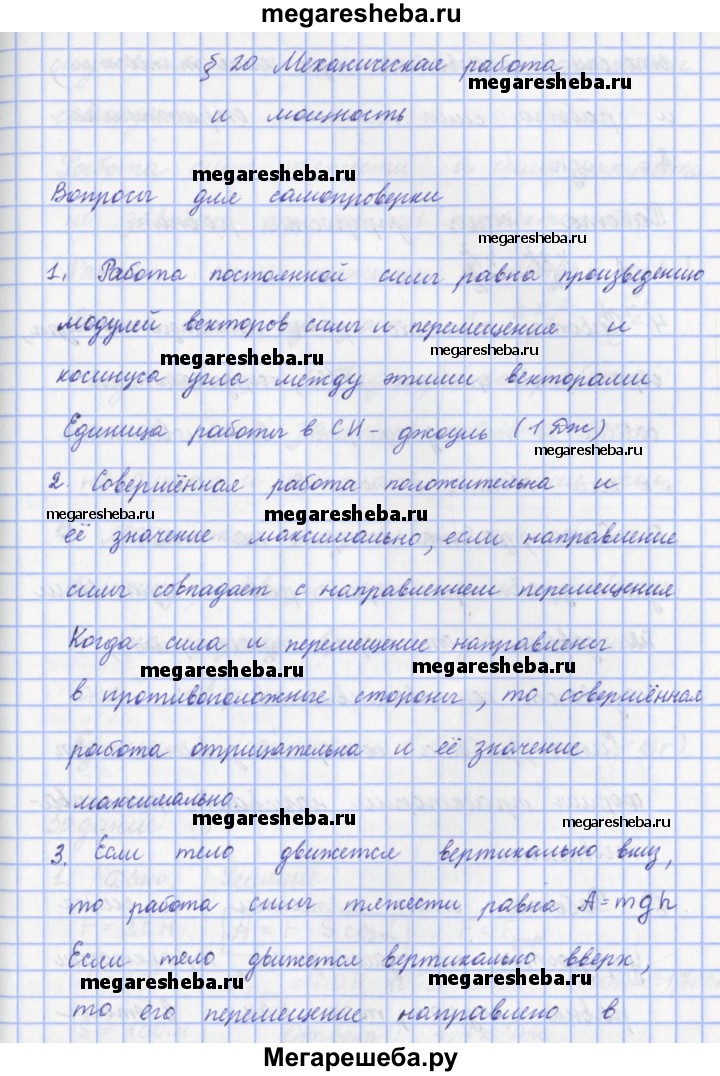 megaresheba.ru
§ 20 Механическая работа
megaresheba.ru
и мощность
megaresheba.ru
Вопросы для самопроверки
megaresheba.ru
1. Работа постоянной силы равна произведению
модулей векторов силы и перемещения и
megaresheba.ru megaresheba.ru
косинуса угла между этими векторами
Единица работы в СИ - джоуль (1 Дж)
megaresheba.ru
2. Совершённая работа положительна и
megaresheba.ru megaresheba.ru
её значение максимально, если направление
силы совпадает с направлением перемещения
Когда сила и перемещение направлены
megaresheba.ru megaresheba.ru
в противоположные стороны, то совершённая
работа отрицательна и её значение
максимально
megaresheba.ru megaresheba.ru
3. Если тело движется вертикально вниз,
то работа силы тяжести равна A=mgh
Если тело движется вертикально вверх,
megaresheba.ru megaresheba.ru
то его перемещение направлено в
Мегарешеба.ру